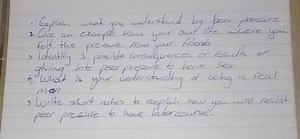 • Explain what you understand by peer pressure
• Give an example from your own life where you
felt the pressure from your friends
• Identify 3 possible consequences or results of
giving into peer pressure to have sex
• What is your understanding of being a real
man
• Write short notes to explain how you will resist
peer pressure to have intercourse.